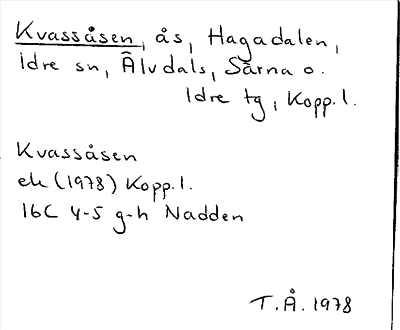 Kvassåsen, ås, Hagadalen,
Idre sn, Älvdals, Särna o.
Idre tg, Kopp.l.
Kvassåsen
ek (1978) Kopp.l.
16C 4-5 g-h Nadden
T.Å. 1978